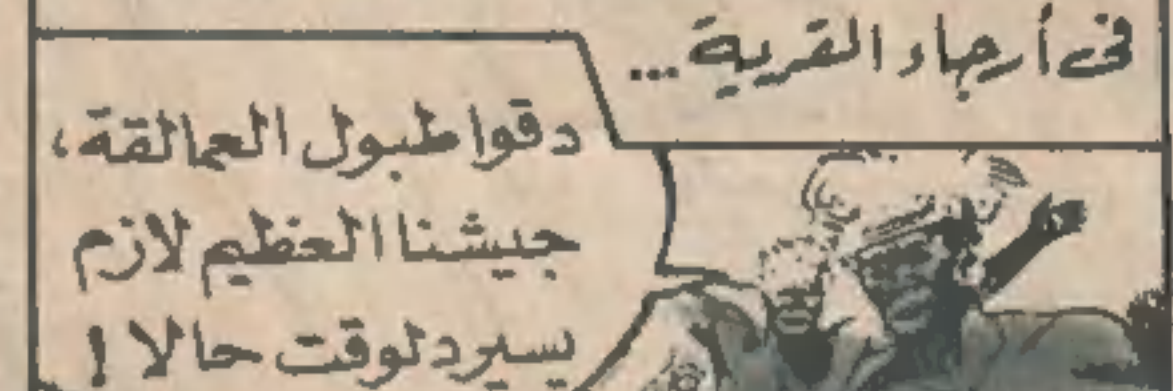 فى أرجاء القرية ...
دقوا طبول العمالقة،
جيشنا العظيم لازم
يسير دلوقت حالا !